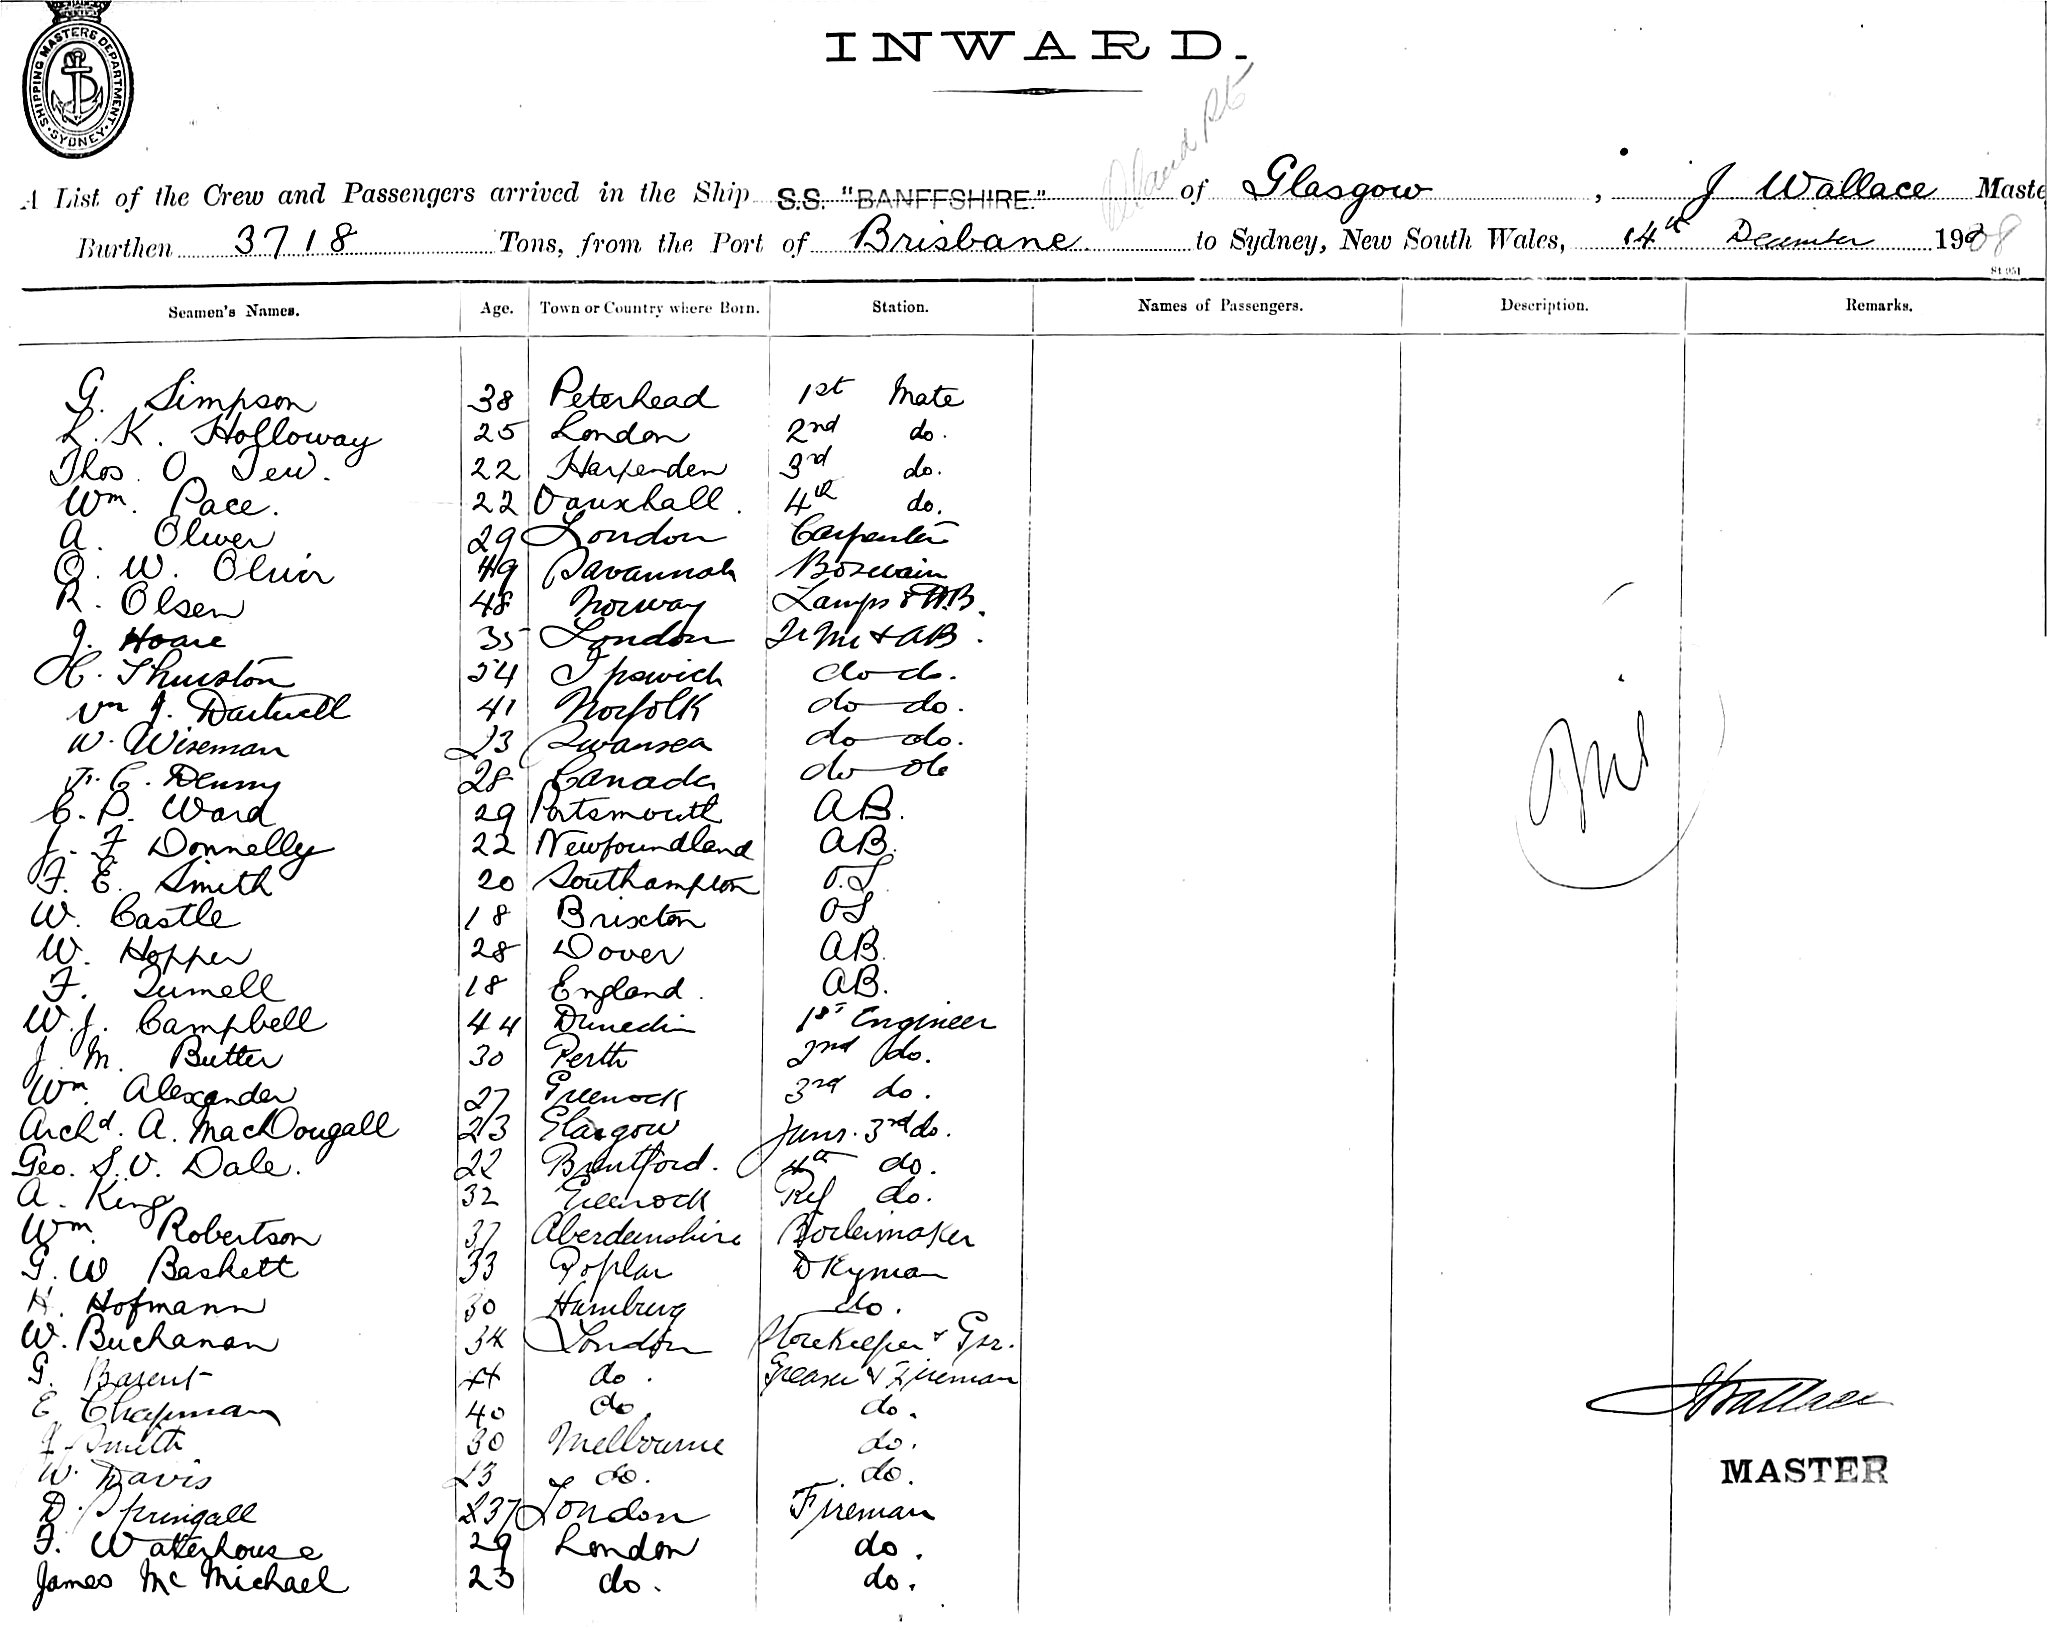 SHIPPING MASTERS DEPARTMENT
SYDNEY
INWARD.
A List of the Crew and Passengers arrived in the Ship S.S. "BANFFSHIRE." of Glasgow, J Wallace Maste
Burthen 3718 Tons, from the Port of Brisbane to Sydney, New South Wales, 14th December 1908
St 951
Seamen's Names. Age. Town or Country where Born. Station. Names of Passengers. Description. Remarks.
G. Simpson 38 Peterhead 1st Mate
L. K. Holloway 25 London 2nd do.
Thos. O. Tew. 22 Harpenden 3rd do.
Wm. Pace. 22 Vauxhall. 4th do.
A. Oliver 29 London Carpenter
O. W. Oliver 49 Savannah Boswain
R. Olsen 48 Norway Lamps & AB.
J. Hoare 35 London & AB.
H. Thurston 54 Ipswich do do.
Wm J. Dartnell 41 Norfolk do do.
W. Wiseman 23 Swansea do do.
C. Denny 28 Canada do do
C. P. Ward 29 Portsmouth AB.
J. F Donnelly 22 Newfoundland AB.
F. E. Smith 20 Southampton O.S.
W. Castle 18 Brixton OS
W. Hopper 28 Dover AB.
F. 18 England. AB.
W. J. Campbell 44 Dunedin 1st Engineer
J. M. Butter 30 Perth 2nd do.
Wm. Alexander 27 Greenock 3rd do.
Archd. A. MacDougall 23 Glasgow Junr. 3rd do.
Geo. S. V. Dale. 22 Brentford. 4th do.
A. King 32 Greenock Ref do.
Wm. Robertson 37 Aberdeenshire Boilermaker
G. W Baskett 33 Poplar DKyman
H. Hofmann 30 Hamburg do.
W. Buchanan 34 London Storekeeper & Gsr.
G. Barent do. Greaser & Fireman
E Chapman 40 do. do.
Smith 30 Melbourne do.
W. Davis 23 do. do.
D. Springall 37 London Fireman
F. Waterhouse 29 London do.
James McMichael 23 do. do.
Nil
J Wallace
MASTER